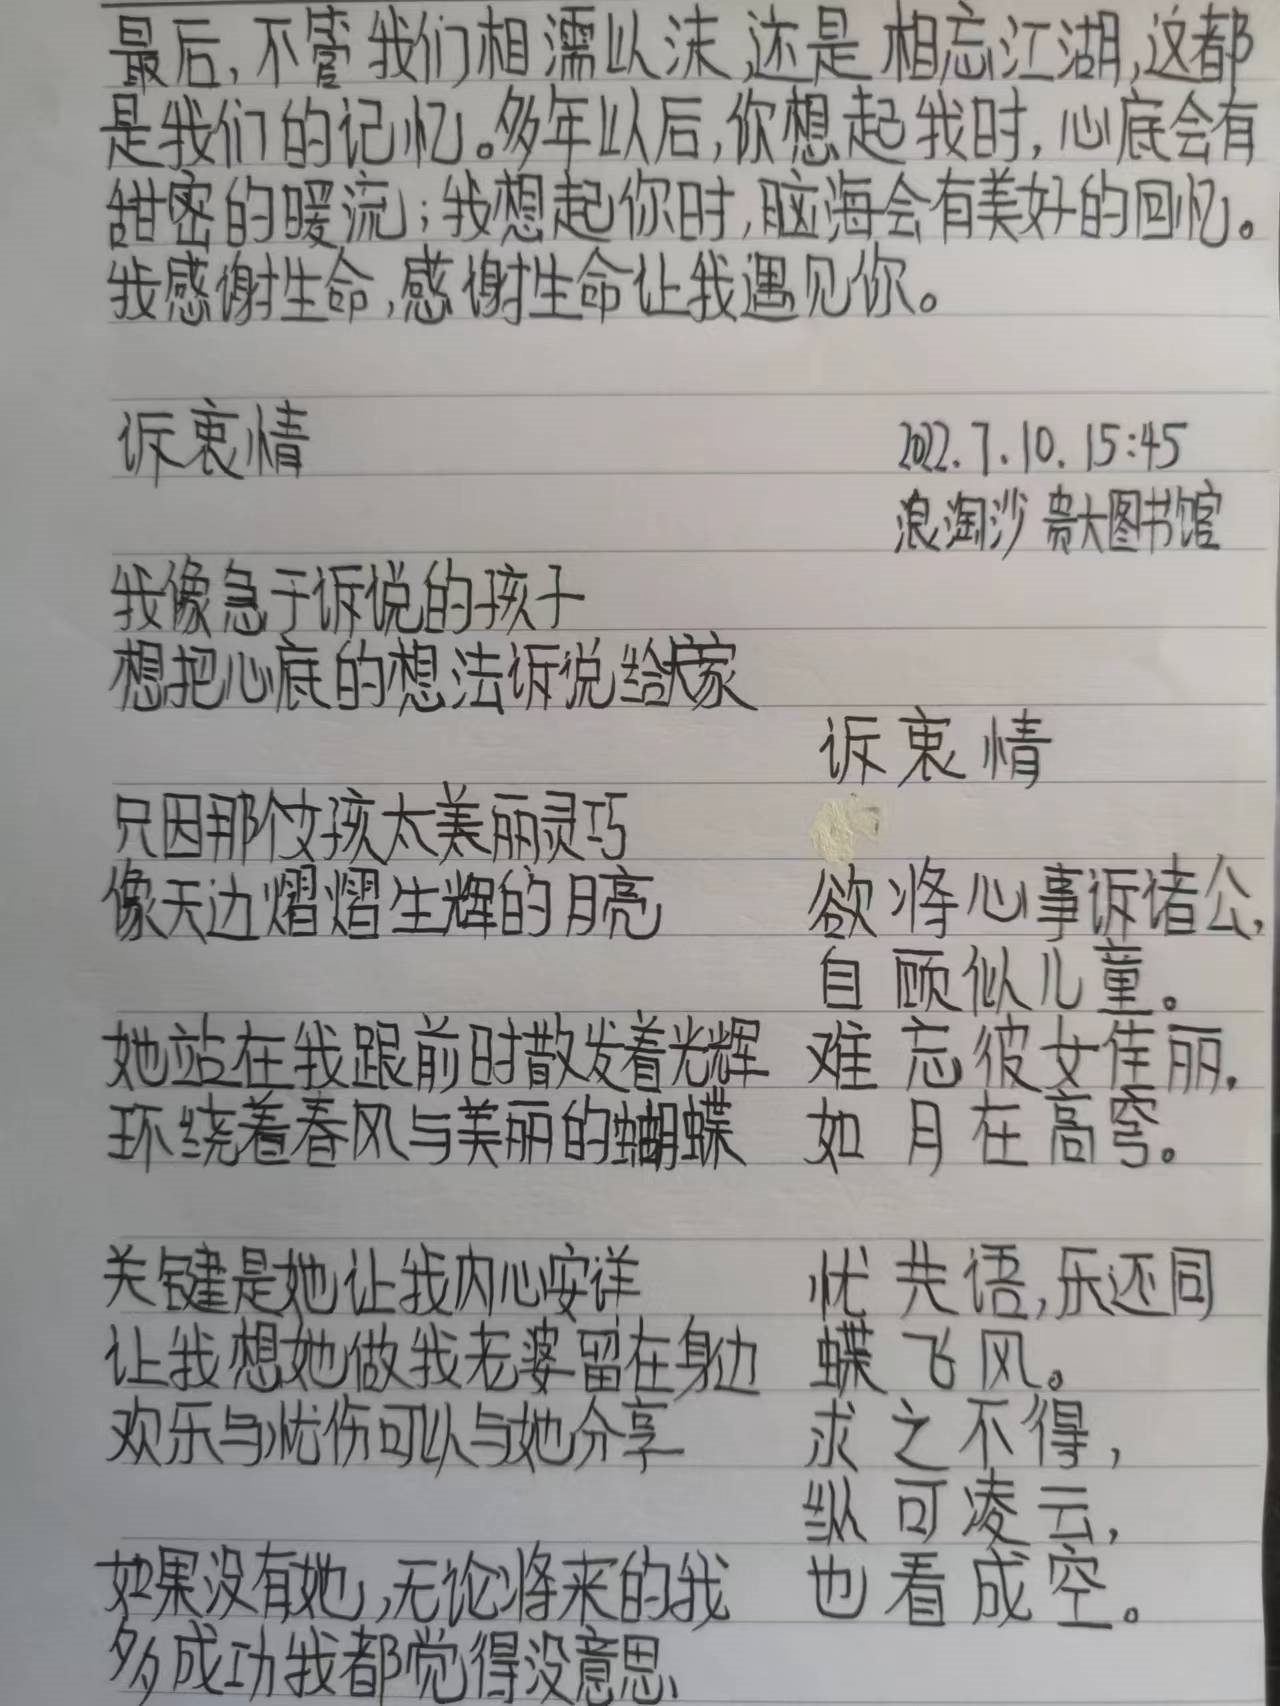 最后,不管我们相濡以沫,还是相忘江湖,这都
是我们的记忆。多年以后,你想起我时,心底会有
甜密的暖流;我想起你时,脑海会有美好的回忆。
我感谢生命,感谢生命让我遇见你。
诉衷情
2022.7.10.15:45
浪淘沙 贵大图书馆
我像急于诉说的孩子
想把心底的想法诉说给大家
只因那个女孩太美丽灵巧
像天边熠熠生辉的月亮
她站在我跟前时散发着光辉
环绕着春风与美丽的蝴蝶
关键是她让我内心安详
让我想她做我老婆留在身边
欢乐与忧伤可以与她分享
如果没有她,无论将来的我
多成功我都觉得没意思
诉衷情
欲将心事诉诸公,
自顾似儿童。
难忘彼女佳丽,
如月在高穹。
忧共语,乐还同
蝶飞风。
求之不得,
纵可凌云,
也看成空。